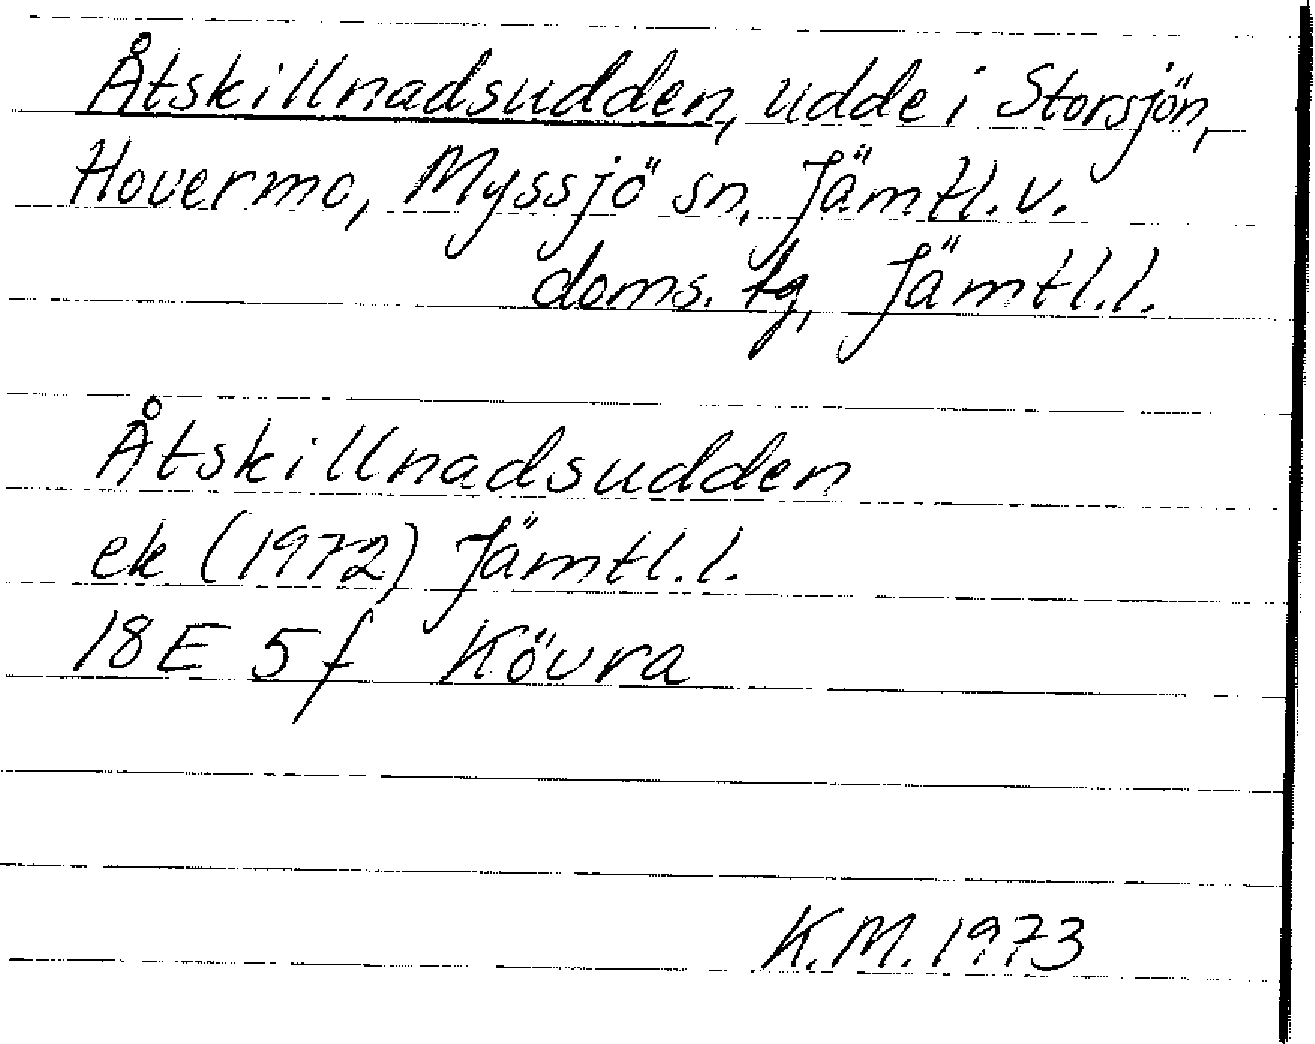 Åtskillnadsudden, udde i Storsjön,
Hovermo, Myssjö sn, Jämtl. v.
doms. tg, Jämtl. l.
Åtskillnadsudden
ek (1972) Jämtl. l.
18E 5f Kövra
K.M. 1973